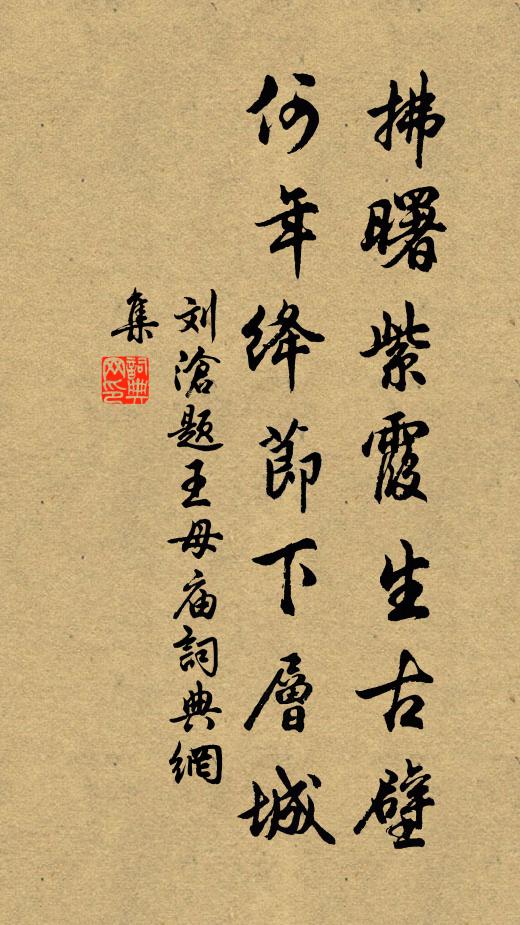 拂曙紫霞生古壁
何年绛節下層城
刘滄题王母庙詞典網
集
詞典
网印